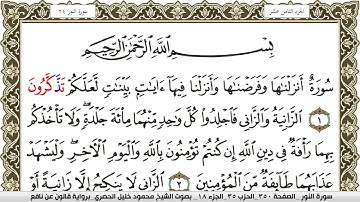 سورة النور ٢٤
الجزء الثامن عشر
بِسْمِ اللَّهِ الرَّحْمَٰنِ الرَّحِيمِ
سُورَةٌ أَنزَلْنَٰهَا وَفَرَضْنَٰهَا وَأَنزَلْنَا فِيهَآ ءَايَٰتٍۭ بَيِّنَٰتٍ لَّعَلَّكُمْ تَذَكَّرُونَ
١ ٱلزَّانِيَةُ وَٱلزَّانِى فَٱجْلِدُوا۟ كُلَّ وَٰحِدٍ مِّنْهُمَا مِا۟ئَةَ جَلْدَةٍ وَلَا تَأْخُذْكُم
بِهِمَا رَأْفَةٌ فِى دِينِ ٱللَّهِ إِن كُنتُمْ تُؤْمِنُونَ بِٱللَّهِ وَٱلْيَوْمِ ٱلْءَاخِرِ وَلْيَشْهَدْ
عَذَابَهُمَا طَآئِفَةٌ مِّنَ ٱلْمُؤْمِنِينَ ٢ ٱلزَّانِى لَا يَنكِحُ إِلَّا زَانِيَةً أَوْ
سورة النور الصفحة ٣٥٠ الحزب ٣٥ الجزء ١٨ بصوت الشيخ محمود خليل الحصري برواية قالون عن نافع